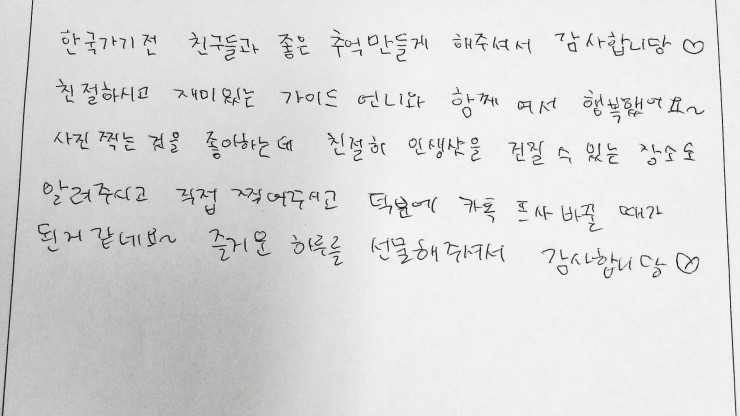 한국가기전 친구들과 좋은 추억만들게 해주셔서 감사합니당 ♡
친절하시고 재미있는 가이드 언니와 함께 여서 행복했어요~
사진 찍는 것을 좋아하는데 친절히 인생샷을 건질 수 있는 장소도
알려주시고 직접 찍어주시고 덕분에 카톡 프사 바꿀 때가
된거 같네요~ 즐거운 하루를 선물해주셔서 감사합니당 ♡